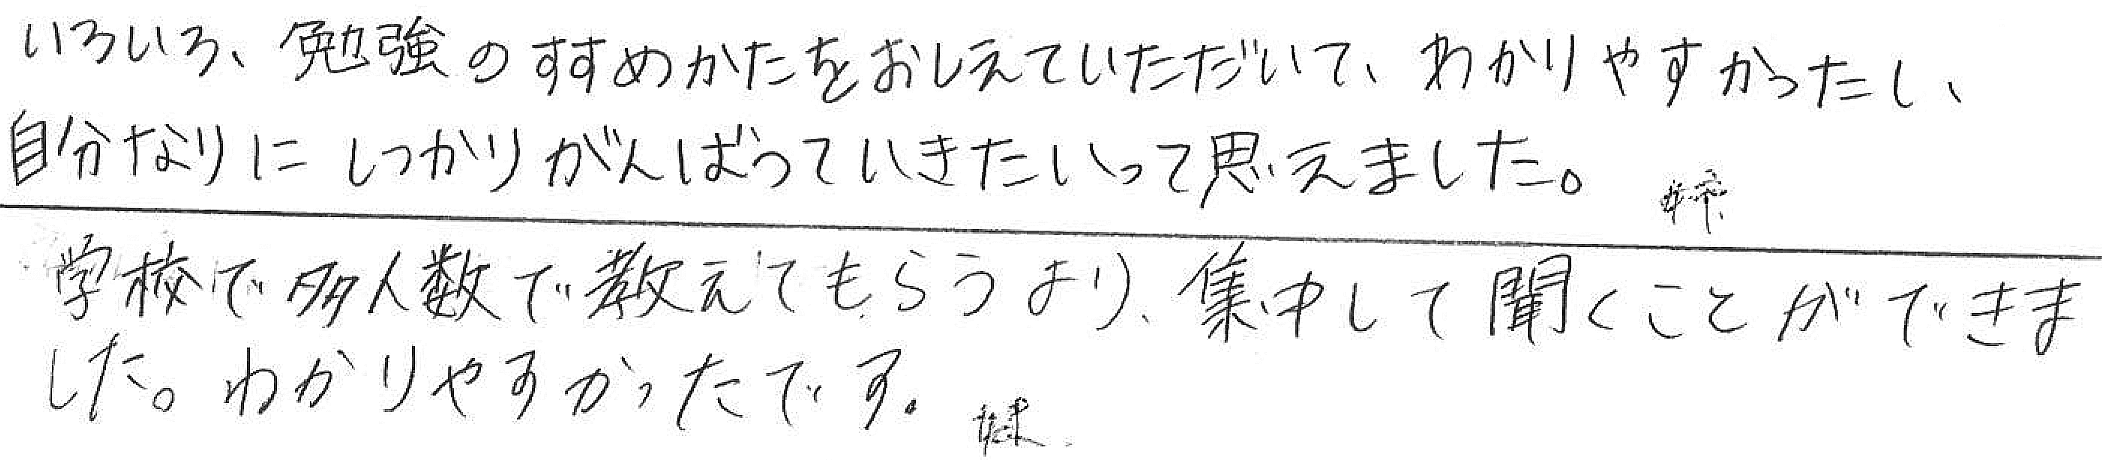 いろいろ、勉強のすすめかたをおしえていただいて、わかりやすかったし、
自分なりにしっかりがんばっていきたいって思えました。 姉
学校で多人数で教えてもらうより、集中して聞くことができま
した。わかりやすかったです。 妹